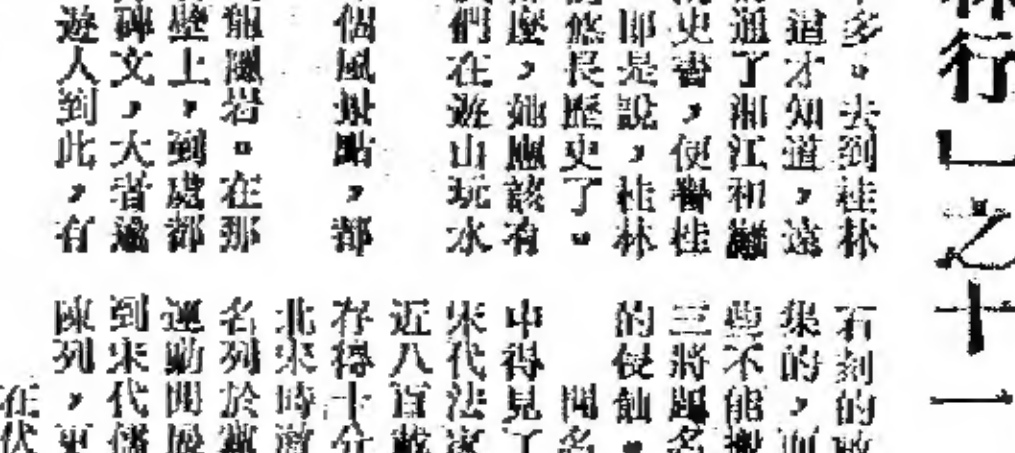 林行」之十一
多。去到桂林
道才知道,遠
通了湘江和灕
史書,便譽桂
即是說,桂林
悠長歷史了。
麼,她應該有
們在遊山玩水
個風景點,都
龍隱岩。在那
壁上,到處都
碑文,大者逾
遊人到此,有
石刻的
集的,而
些不能搬
三將題名
的侵蝕。
聞名
中得見了
宋代法家
近八百載
存得十分
北宋時
名列於黨
運動開
到宋代
陳列,更
在